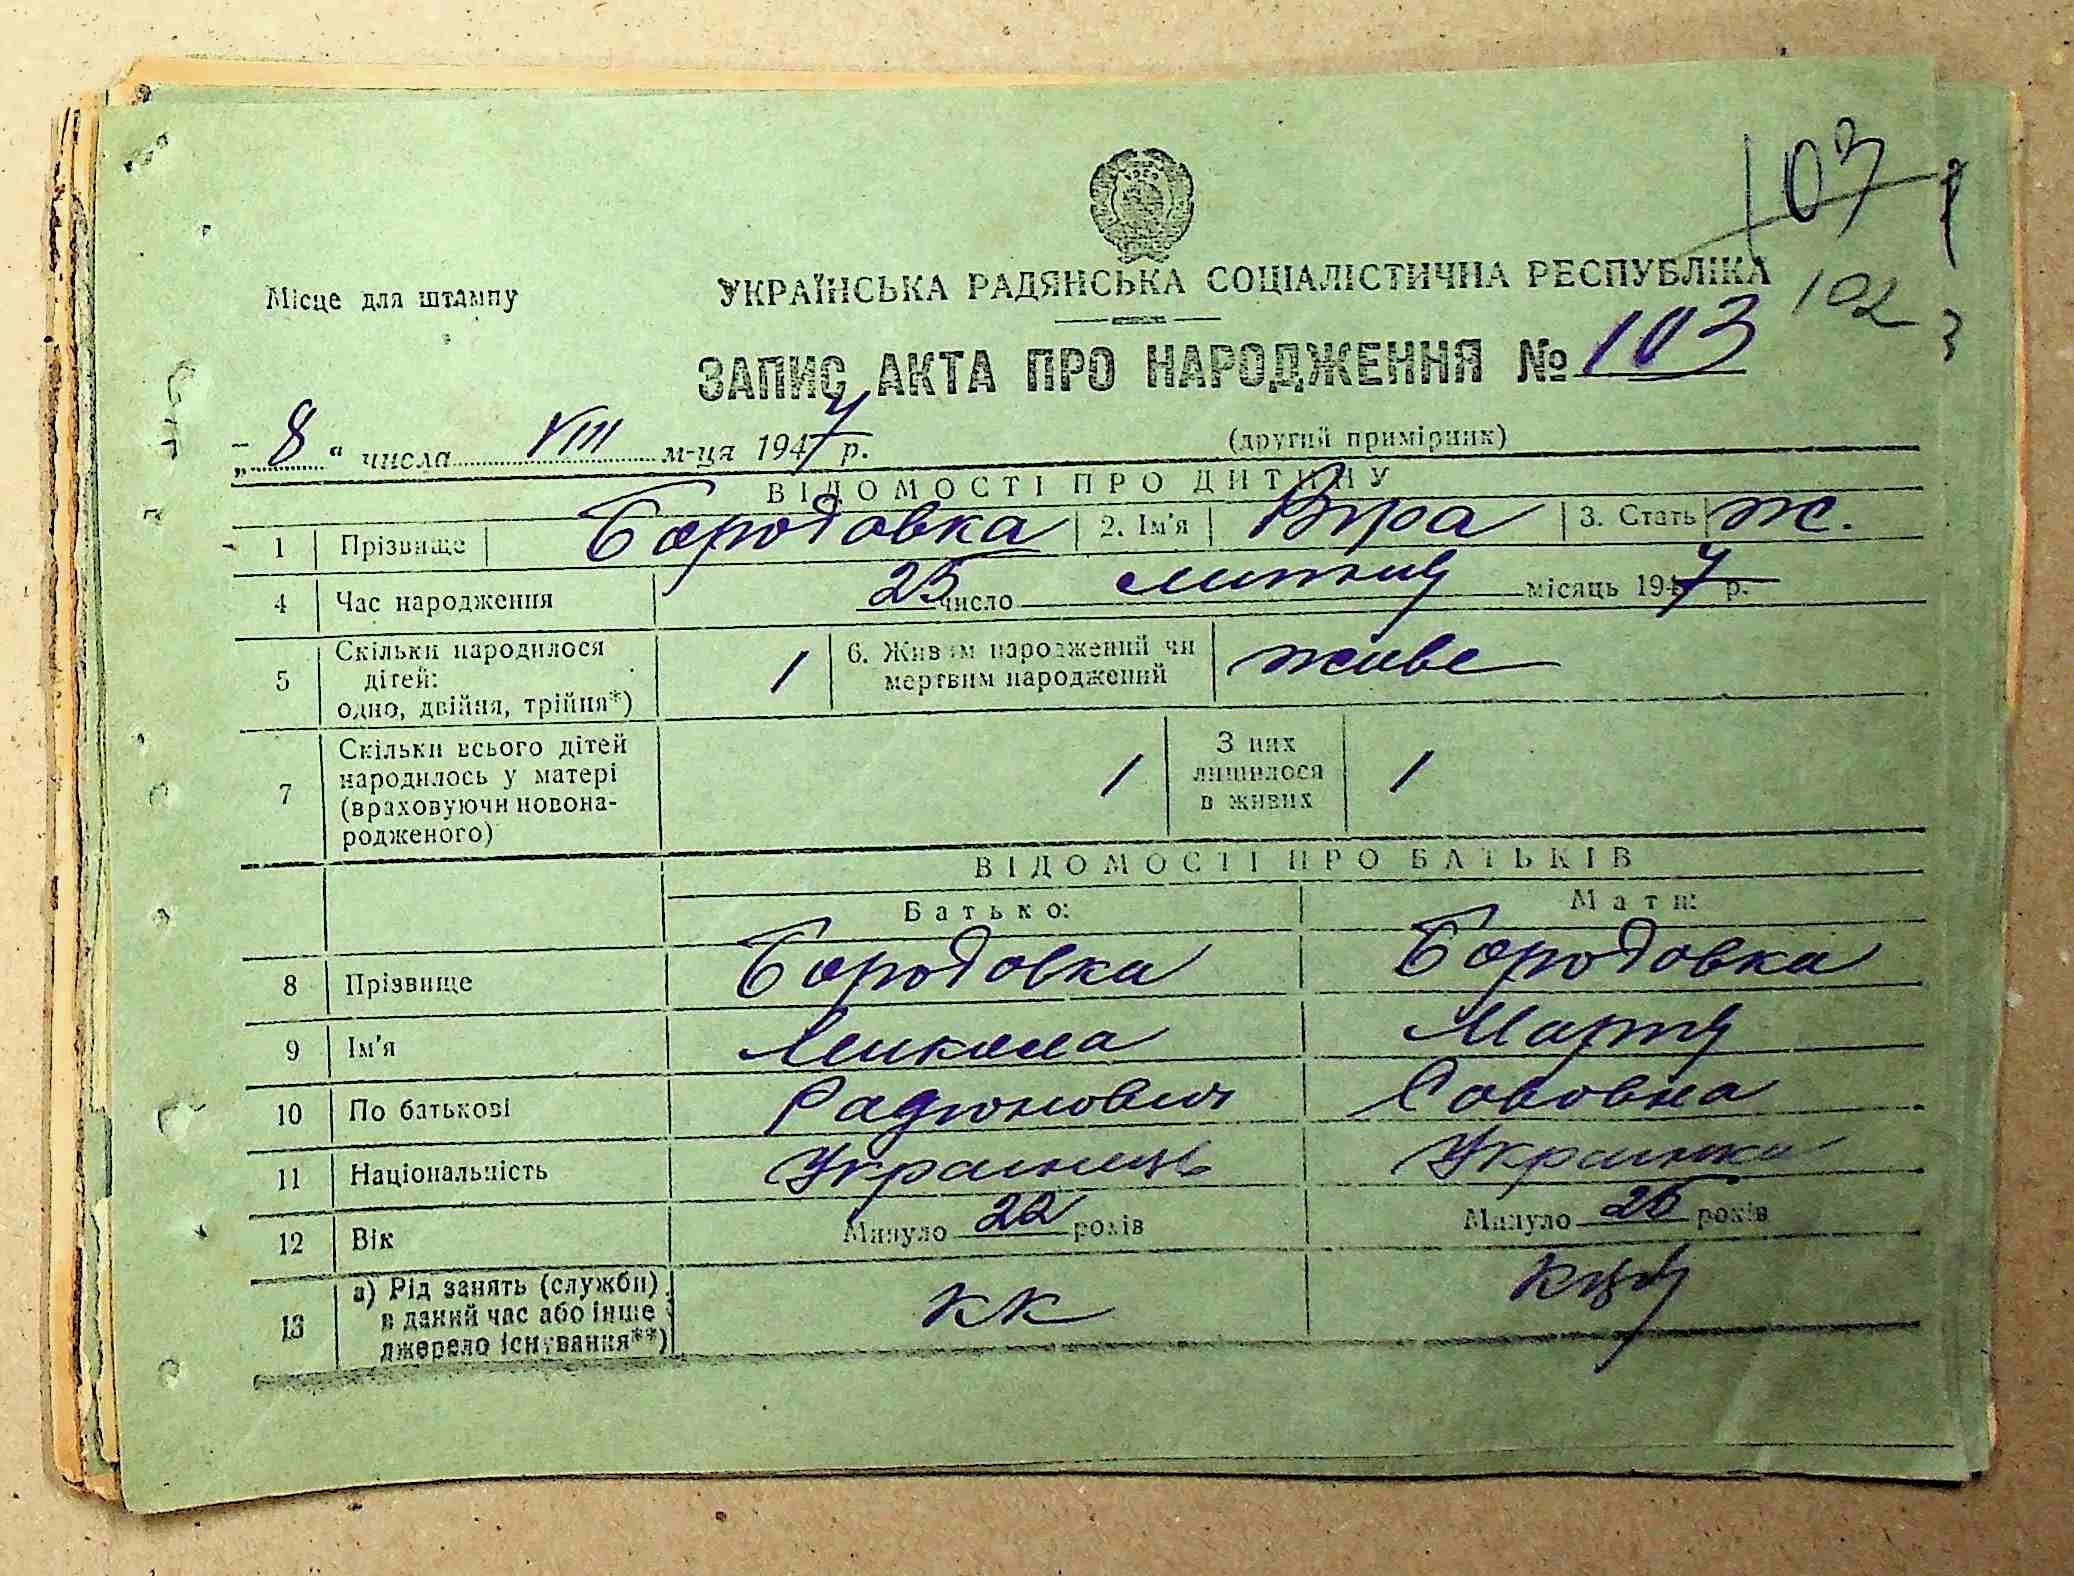 103
УКРАЇНСЬКА РАДЯНСЬКА СОЦІАЛІСТИЧНА РЕСПУБЛІКА
Місце для штампу
102
ЗАПИС АКТА ПРО НАРОДЖЕННЯ № 103
„8“ числа VIII м-ця 1947 р.
(другий примірник)
ВІДОМОСТІ ПРО ДИТИНУ
1 Прізвище Бородовка 2. Ім'я Віра 3. Стать ж.
4 Час народження 25 число липня місяць 1947 р.
5 Скільки народилося дітей: одно, двійня, трійня*) 1 6. Живим народжений чи мертвим народжений живе
7 Скільки всього дітей народилось у матері (враховуючи новонародженого) 1 З них лишилося в живих 1
ВІДОМОСТІ ПРО БАТЬКІВ
Батько: Мати:
8 Прізвище Бородовка Бородовка
9 Ім'я Микола Марія
10 По батькові Радіонович Савовна
11 Національність Українець Українка
12 Вік Минуло 22 років Минуло 25 років
13 а) Рід занять (служби) в даний час або інше джерело існування**) кк